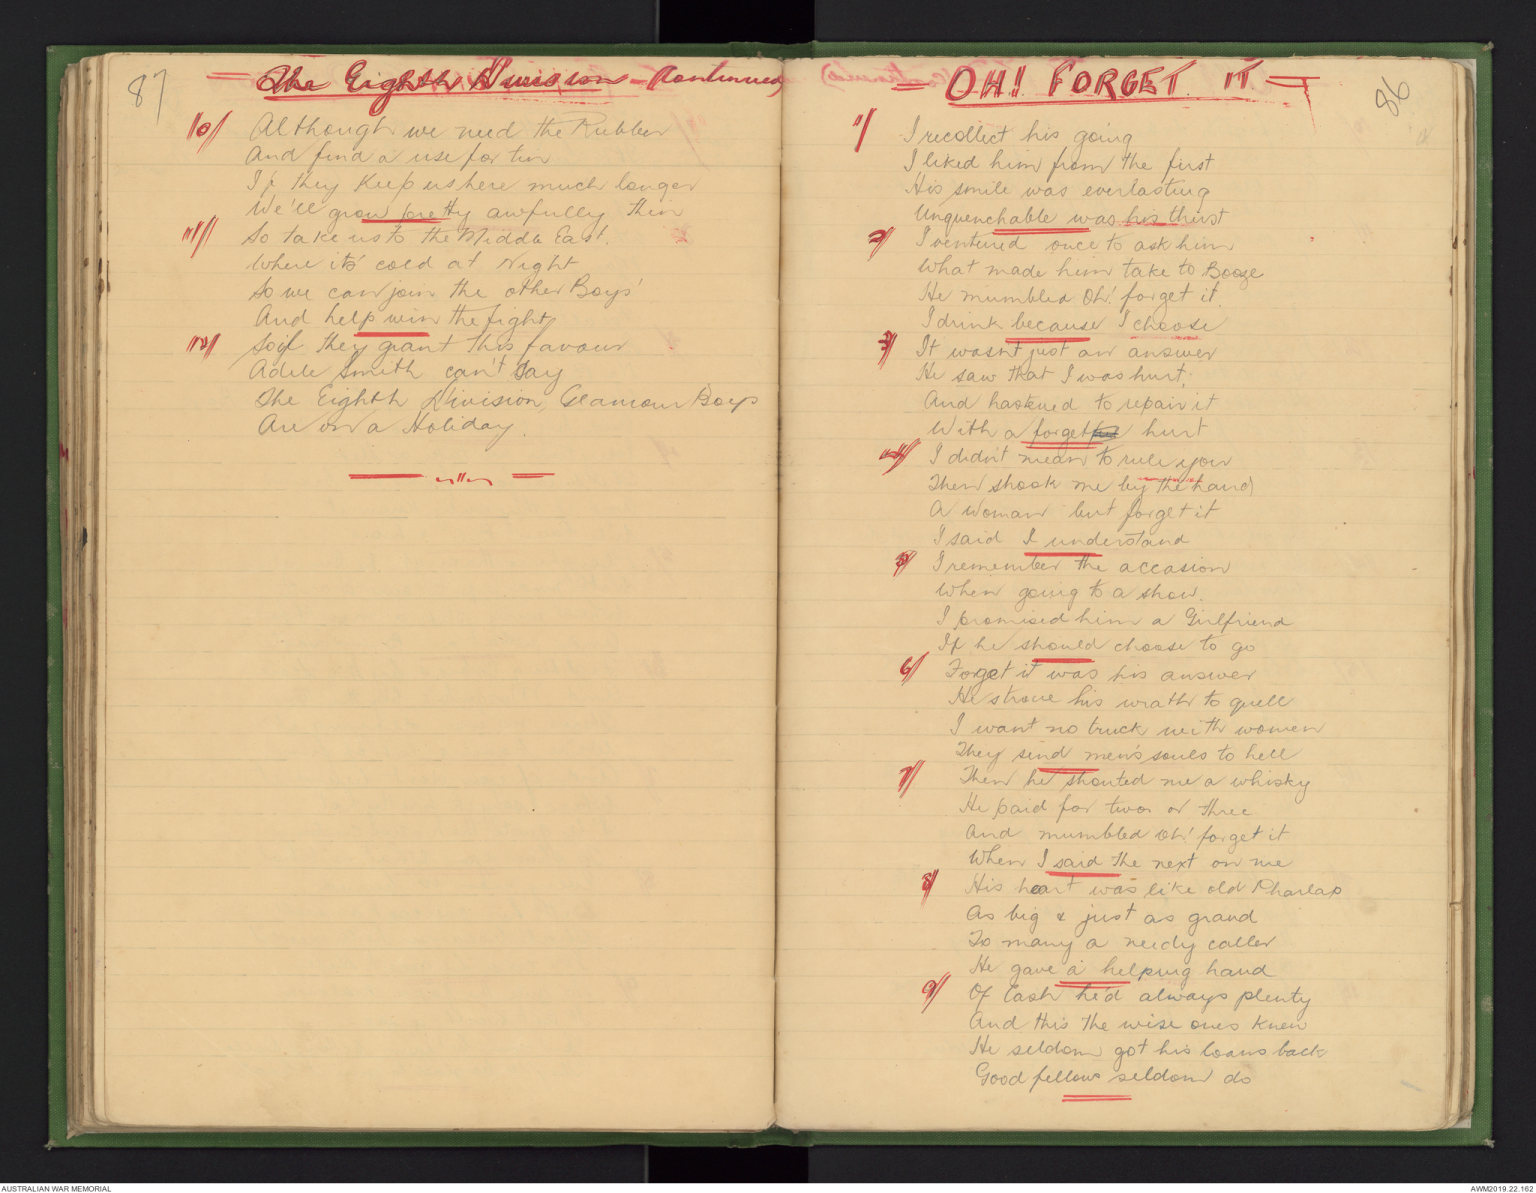 87
The Eighth Division - Continued
10/ Although we need the Rubber
And find a use for tin
If they keep us here much longer
We'll grow pretty awfully thin
11/ So take us to the Middle East.
Where it's cold at Night
So we can join the other Boys'
And help win the fight
12/ So if they grant this favour
Adele Smith can't Say
The Eighth Division, Glamour Boys
Are on a Holiday.
86
OH! FORGET IT
1/ I recollect his going
I liked him from the first
His smile was everlasting
Unquenchable was his thirst
2/ I ventured once to ask him
What made him take to Booze
He mumbled Oh! forget it.
I drink because I choose
3/ It wasn't just an answer
He saw that I was hurt,
And hastened to repair it
With a forget hurt
4/ I didn't mean to rule you
Then shook me by the hand
A woman but forget it
I said I understand
5/ I remember the accasion
When going to a show.
I promised him a Girlfriend
If he should choose to go
6/ Forget it was his answer
He strove his wrath to quell
I want no truck with women
They send men's souls to hell
7/ Then he shouted me a whisky
He paid for two or three
And mumbled Oh! forget it
When I said the next on me
8/ His heart was like old Pharlap
As big & just as grand
To many a needy caller
He gave a helping hand
9/ Of Cash he'd always plenty
And this the wise ones knew
He seldom got his loans back
Good fellows seldom do
AUSTRALIAN WAR MEMORIAL
AWM2019.22.162